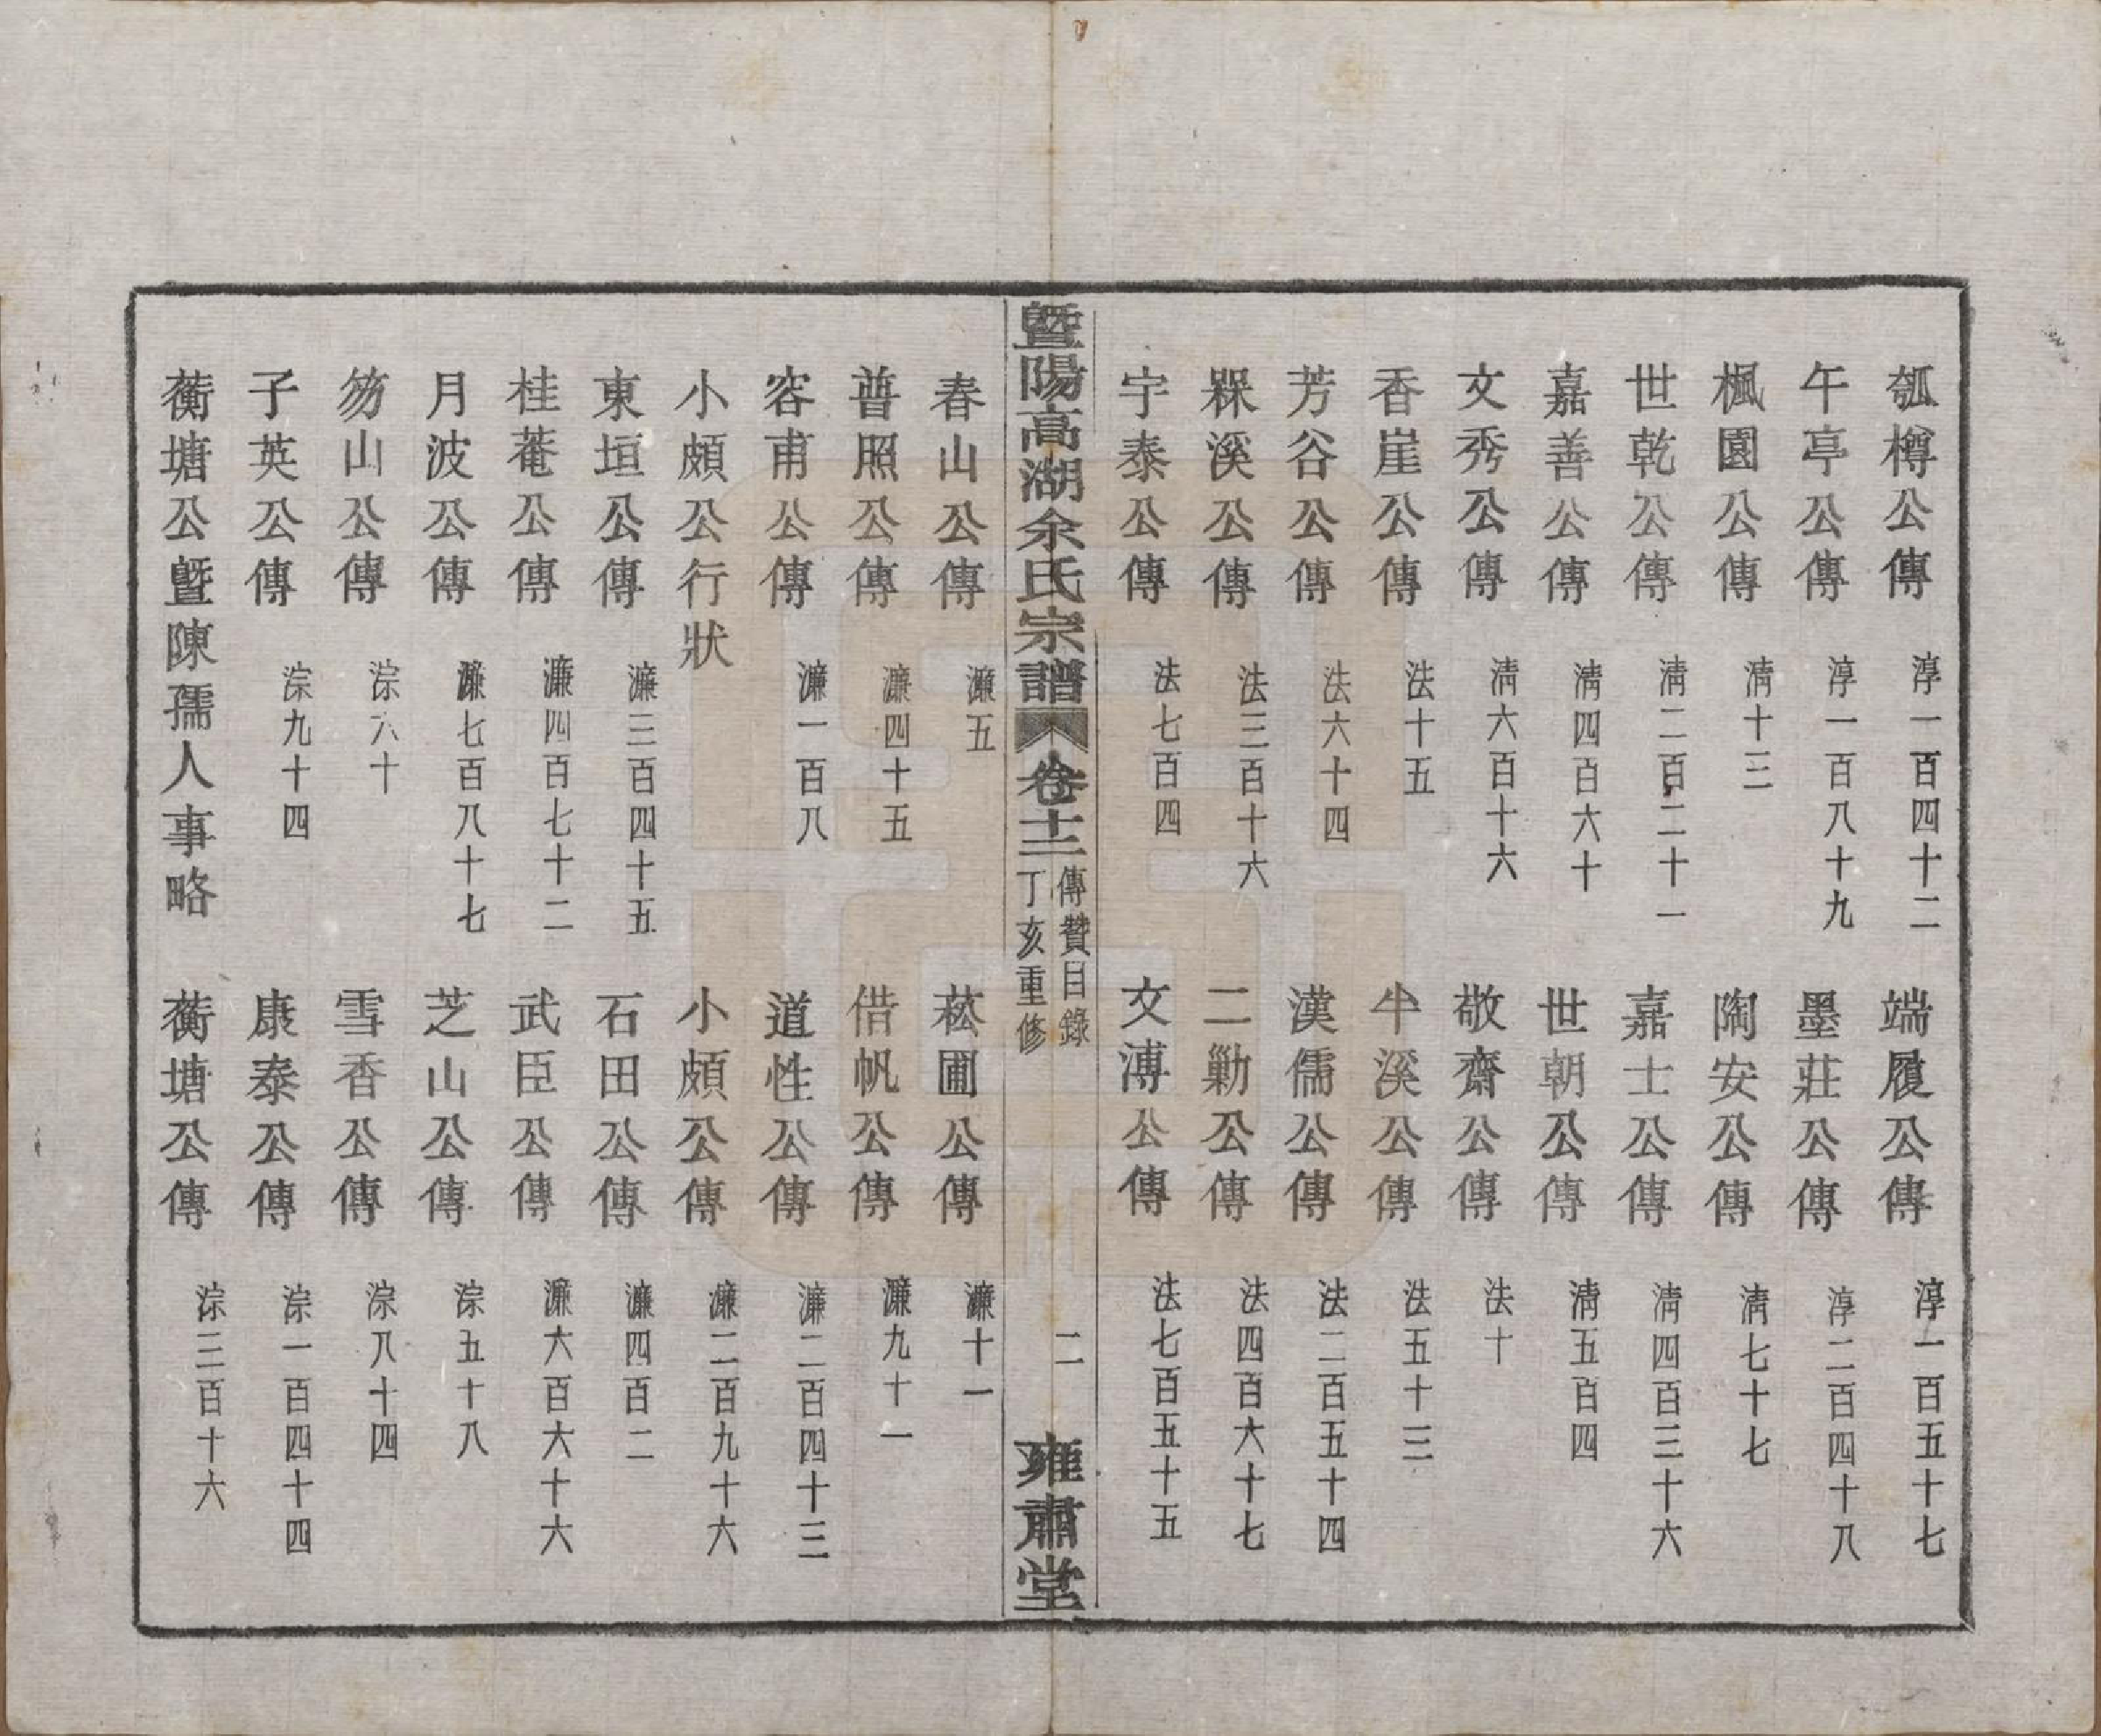 瓠樽公傳 淳一百四十二 端履公傳 淳一百五十七
午亭公傳 淳一百八十九 墨莊公傳 淳二百四十八
楓園公傳 清十三 陶安公傳 清七十七
世乾公傳 清二百二十一 嘉士公傳 清四百三十六
嘉善公傳 清四百六十 世朝公傳 清五百四
文秀公傳 清六百十六 敬齋公傳 法十
香崖公傳 法十五 半溪公傳 法五十三
芳谷公傳 法六十四 漢儒公傳 法二百五十四
槑溪公傳 法三百十六 二勦公傳 法四百六十七
宇泰公傳 法七百四 文溥公傳 法七百五十五
暨陽高湖余氏宗譜 卷十二 傳贊目錄 丁亥重修 二 雍肅堂
春山公傳 濂五 菘圃公傳 濂十一
普照公傳 濂四十五 借帆公傳 濂九十一
容甫公傳 濂一百八 道性公傳 濂二百四十三
小頗公行狀 小頗公傳 濂二百九十六
東垣公傳 濂三百四十五 石田公傳 濂四百二
桂菴公傳 濂四百七十二 武臣公傳 濂六百六十六
月波公傳 濂七百八十七 芝山公傳 淙五十八
笏山公傳 淙六十 雪香公傳 淙八十四
子英公傳 淙九十四 康泰公傳 淙一百四十四
蘅塘公暨陳孺人事略 蘅塘公傳 淙三百十六